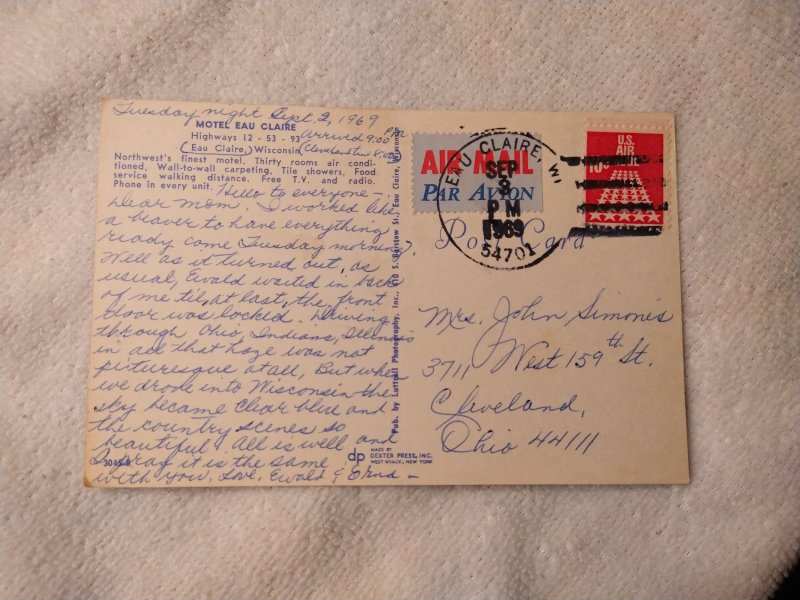 Tuesday night Sept. 2, 1969
MOTEL EAU CLAIRE
Highways 12 - 53 - 93 arrived 9:00 PM
(Eau Claire,) Wisconsin (Cleveland time 8:00)
Northwest's finest motel. Thirty rooms air condi-
tioned, Wall-to-wall carpeting, Tile showers, Food
service walking distance. Free T.V. and radio.
Phone in every unit. Hello to everyone –
Dear Mom, I worked like
a beaver to have everything
ready come Tuesday morning.
Well as it turned out, as
usual, Ewald waited in back
of me til, at last, the front
door was locked. Driving
through Ohio, Indiana, Illinois
in all that haze was not
picturesque at all, But when
we drove into Wisconsin the
sky became clear blue and
the country scenes so
beautiful. All is well and
I pray it is the same
with you. Love, Ewald & Erna –
3045-B
Pub. by Luttrell Photography, Inc., 310 S. Barstow St., Eau Claire, Wisconsin
dp
MADE BY
DEXTER PRESS, INC.
WEST NYACK, NEW YORK
AIR MAIL
PAR AVION
EAU CLAIRE, WI
SEP
PM
1969
54701
U.S.
AIR
10¢
Post Card
Mrs. John Simonis
3711 West 159th St.
Cleveland,
Ohio 44111